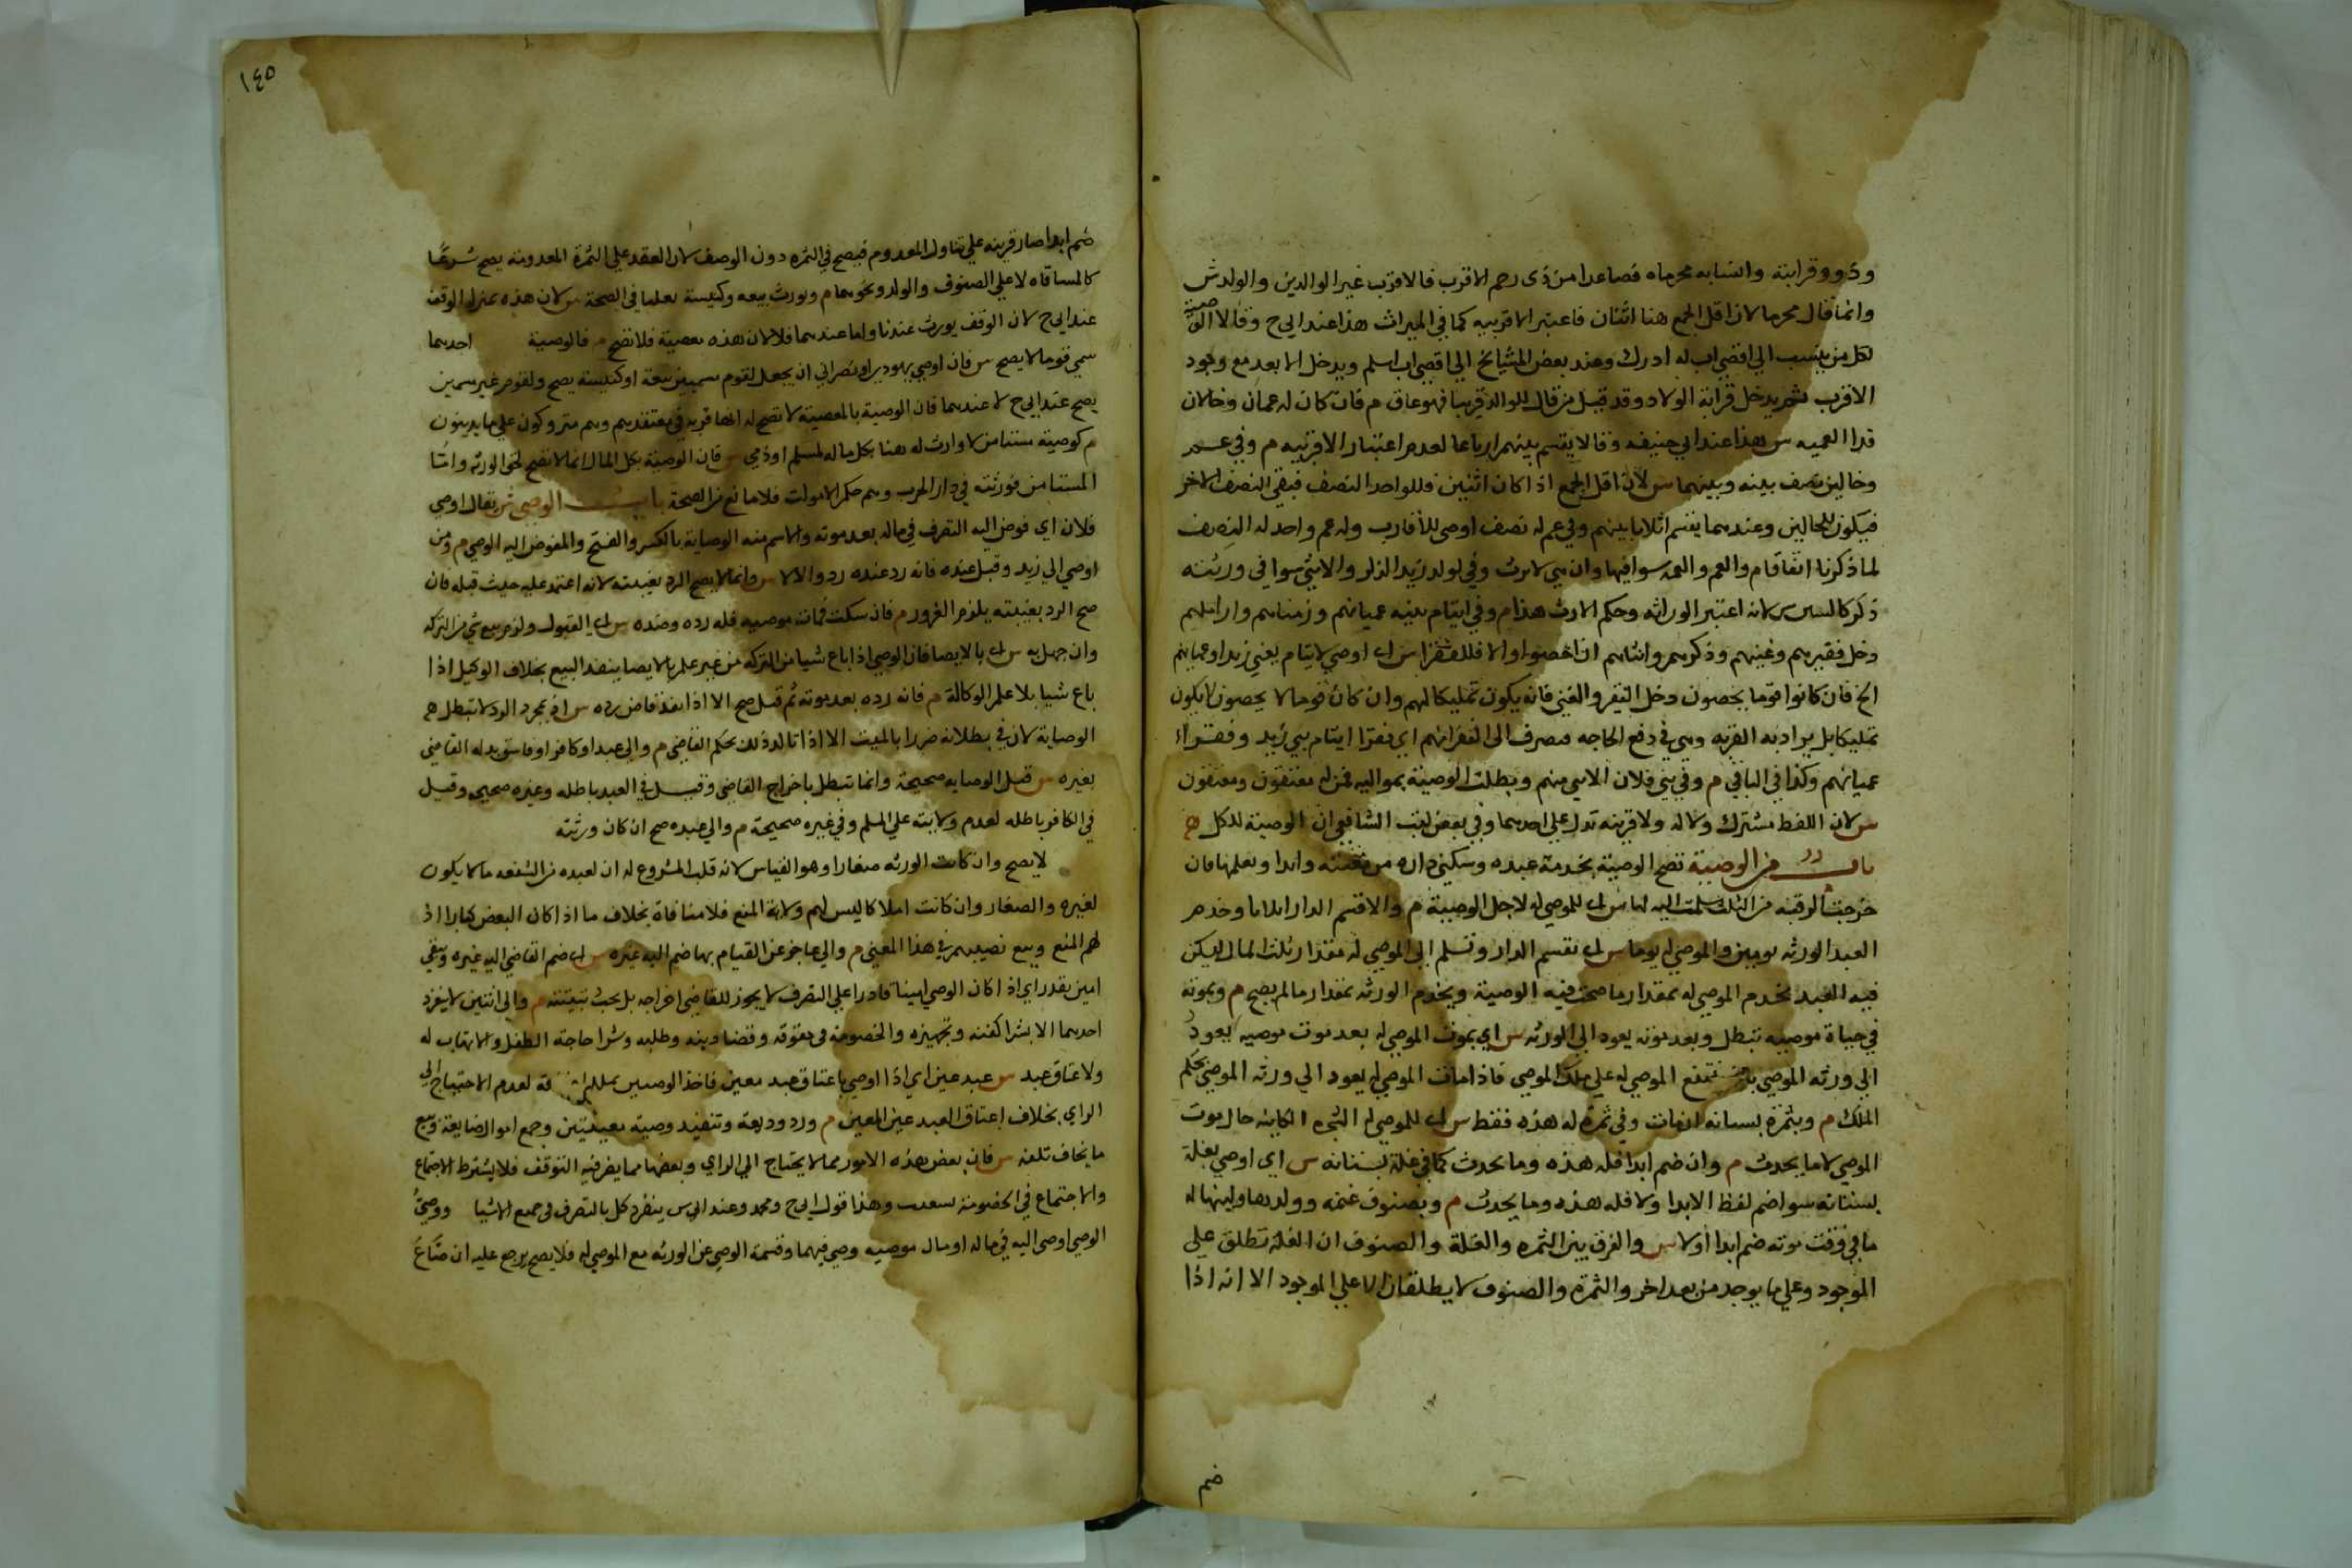 وذوو قرابته وانسابه محرماه فصاعدا من ذى رحم الاقرب فالاقرب غير الوالدين والولد ش
وانما قال محرما لان اقل الجمع هنا اثنان فاعتبر الاقربيه كما في الميراث هذا عند ابي ح وقالا الوصية
لكل من ينسب الي اقصى اب له ادرك وعند بعض المشايخ الي اقصى اب اسلم ويدخل الابعد مع وجود
الاقرب ثم يدخل قرابة الولاد وقد قيل من قال للوالد قريبا فهو عاق م فان كان له عمان وخالان
قدا العميه س هذا عند ابي حنيفه وقالا يقسم بينهم ارباعا لعدم اعتبار الاقربيه م وفي عم
وخالين نصف بينه وبينهما س لان اقل الجمع اذا كان اثنين فللواحد النصف فبقى النصف الاخر
فيكون للخالين وعندهما يقسم اثلاثا بينهم وفي عم له نصف اوصى للاقارب وله عم واحد له النصف
لما ذكرنا اتفاقا م والعم والعمه سوا فيها وان هي لا ترث وفي لولد زيد الذكر والانثى سوا في ورثته
ذكر كالسس س لانه اعتبر الوراثه وحكم الارث هذا م وفي ايتام بنيه عميانهم وزمناهم واراملهم
دخل فقيرهم وغنيهم وذكرهم وانثاهم ان احصوا والا فللفقرا س اى اوصي لايتام يعني زيد او عميانهم
الخ فان كانوا قوما يحصون دخل الفقير والغني فانه يكون تمليكا لهم وان كان قوما لا يحصون لا يكون
تمليكا بل يراد به القربه وهي في دفع الحاجه فصرف الى الفقرا منهم اي فقرا ايتام بني زيد وفقراء
عميانهم وكذا في الباقي م وفي بني فلان الانثى منهم وبطلت الوصية بمواليه فمن له معتقون ومعتقون
س لان اللفظ مشترك ولا له ولا قرينه تدل علي احدهما وفي بعض كتب الشافعي ان الوصية للكل
باب من الوصية تصح الوصية بخدمة عبده وسكنى داره مدة معينه وابدا وبغلتها فان
خرجت الرقبة من الثلث سلمت اليه لها س اى للموصي له لاجل الوصية م والا قسم الدار اثلاثا وخدم
العبد الورثه يومين والموصي له يوما س اى تقسم الدار وتسلم الى الموصي له مقدار ثلث المال ليسكن
فيه العبد يخدم الموصي له بمقدار ما صحت فيه الوصية ويخدم الورثه بمقدار ما لم يصح م وبموته
في حياة موصيه تبطل وبعد موته يعود الى الورثه س اي بموت الموصي له بعد موت موصيه يعود
الى ورثه الموصي يتمتع الموصي له علي ملك الموصي فاذا مات الموصي له يعود الي ورثه الموصي بحكم
الملك م وبثمرة بستانه ان مات وفي ثمرة له هذه فقط س اى للموصي له الثمرة الكاينه حال موت
الموصي لا ما يحدث م وان ضم ابدا فله هذه وما يحدث كما في غلة بستانه س اي اوصي بغلة
بستانه سوا ضم لفظ الابد اولا فله هذه وما يحدث م وبصوف غنمه وولدها ولبنها له
ما في وقت موته ضم ابدا اولا س والفرق بين الثمره والغلة والصوف ان الغلة تطلق على
الموجود وعلى ما يوجد من بعد اخر والثمره والصوف لا يطلقان الا علي الموجود الا انه اذا
ضم
١٤٥
ضم ابدا صار قرينه علي تناول المعدوم فيصح في الثمره دون الوصف لان العقد علي الثمرة المعدومه يصح شرعًا
كالمساقاه لا علي الصوف والولد ونحوهما م ويورث بيعه وكنيسة جعلها في الصحة س لان هذه بمنزله الوقف
عند ابي ح لان الوقف يورث عندنا واما عندهما فلا لان هذه معصية فلا تصح م فالوصية احدهما
سمي قوما لا يصح س فان اوصي يهودي او نصراني ان يجعل لقوم مسميين بيعة او كنيسة يصح ولقوم غير مسمين
يصح عند ابي ح لا عندهما فان الوصية بالمعصية لا تصح له انها قربه في معتقدهم وهم متروكون علي ما يدينون
م كوصية مستامن لا وارث له هنا بكل ماله لمسلم او ذمي س فان الوصية بكل المال انما لا تصح لحق الورثه وامّا
المستامن فورثته في دار الحرب وهم حكم الاموات فلا مانع من الصحة باب الوصي ش يقال اوصي
فلان اي فوض اليه التصرف في ماله بعد موته والاسم منه الوصاية بالكسر والفتح والمفوض اليه الوصي م ومن
اوصي الي زيد وقبل عنده فانه رد عنده رد والا لا س وانما لا يصح الرد بغيبته لانه اعتمد عليه حيث قبله فان
صح الرد بغيبته يلزم الغرور م فان سكت فمات موصيه فله رده وضده س اى القبول ولزم بيع شي من التركه
وان جهل به س اى بالايصا فان الوصي اذا باع شيا من التركه من غير علم بالايصا ينفذ البيع بخلاف الوكيل اذا
باع شيا بلا علم الوكالة م فان رده بعد موته ثم قبل صح الا اذا نفذ قاض رده س اذ بمجرد الرد لا تبطل
الوصاية لان في بطلانه ضررا بالميت الا اذا تاكد ذلك بحكم القاضي م والى عبد او كافر او فاسق بدله القاضي
بغيره س قيل الوصايه صحيحة وانما تبطل باخراج القاضي وقيل في العبد باطله وغيره صحيحه وقيل
في الكافر باطله لعدم ولايته علي المسلم وفي غيره صحيحة م والي عبده صح ان كان ورثته
لا يصح وان كانت الورثه صغارا وهو القياس لانه قلب المشروع له ان لعبده من الشفعه ما لا يكون
لغيره والصغار وان كانت املاكا ليس لهم ولاية المنع فلا منافاة بخلاف ما اذا كان البعض كبارا اذ
لهم المنع وبيع نصيبهم في هذا المعني م والي عاجز عن القيام بها ضم اليه غيره س اى ضم القاضي اليه غيره وبقي
امين يقدر اي اذا كان الوصي امينا قادرا علي التصرف لا يجوز للقاضي اخراجه بل يجب تبقيتته م والى اثنين لا ينفرد
احدهما الا بشرا كفنه وتجهيزه والخصومة في حقوقه وقضا دينه وطلبه وشرا حاجة الطفل والاتهاب له
ولاعتاق عبد س عبد عين اي اذا اوصي باعتاق عبد معين فاخذ الوصيين لعدم الاحتياج الى
الراي بخلاف اعتاق العبد غير المعين م ورد وديعة وتنفيذ وصية معينتين وجمع اموال ضايعة وبيع
ما يخاف تلفه س فان بعض هذه الامور مما لا يحتاج الى الراي وبعضها مما يضر فيه التوقف فلا يشترط الاجتماع
والاجتماع في الخصومة وهذا قول ابي ح ومحمد وعند ابي س ينفرد كل بالتصرف في جميع الاشيا ووصيّ
الوصي اوصى اليه في ماله او مال موصيه وصي فيهما وقسمة الوصي عن الورثه مع الموصي له فلا يصح يرجع عليه ان ضَاعَ